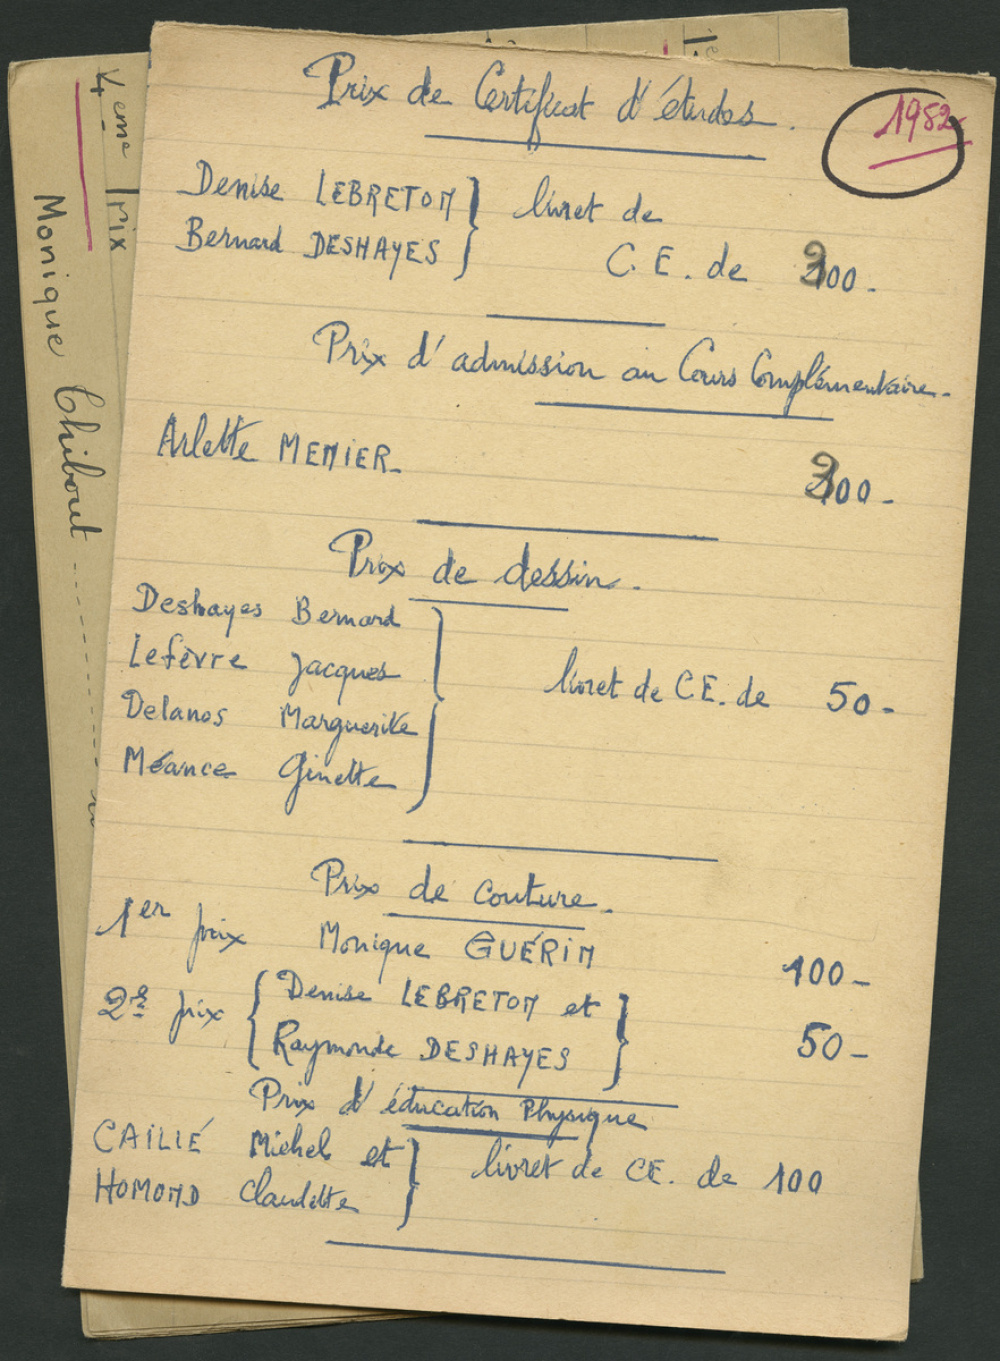 Prix de Certificat d'études.
1952
Denise LEBRETON
Bernard DESHAYES
livret de
C.E. de 200-
Prix d'admission au Cours Complémentaire-
Arlette MENIER- 200-
Prix de dessin.
Deshayes Bernard
Lefèvre Jacques
Delanos Marguerite
Méance Ginette
livret de C.E. de 50-
Prix de Couture.
1er prix Monique GUÉRIN 100-
2e prix Denise LEBRETON et
Raymonde DESHAYES 50-
Prix d'éducation Physique
CAILLÉ Michel et
HOMOND Claudette
livret de CE. de 100
4eme Prix
Monique Chibout